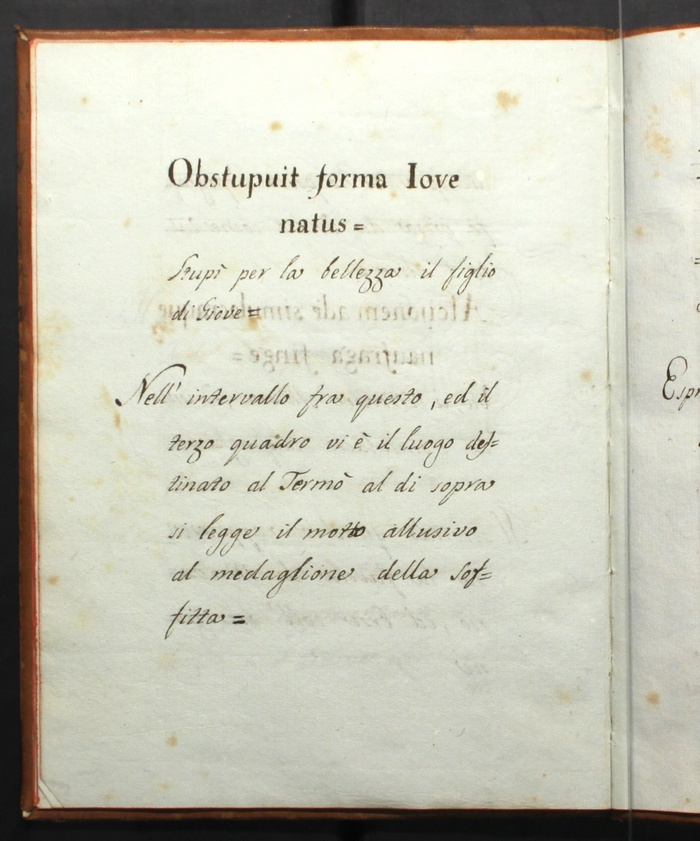 Obstupuit forma Iove
natus =
Stupì per la bellezza il figlio
di Giove =
Nell' intervallo fra questo, ed il
terzo quadro vi è il luogo des=
tinato al Termò al di sopra
si legge il motto allusivo
al medaglione della sof=
fitta =
Espr